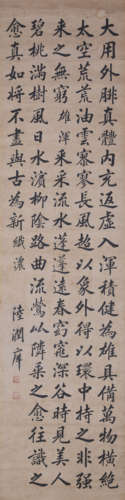 大用外腓真體内充返虛入渾積健為雄具備萬物橫絕
太空荒荒油雲寥寥長風超以象外得其環中持之非強
來之無窮 雄渾 采采流水蓬蓬遠春窈窕深谷時見美人
碧桃滿樹風日水濱柳陰路曲流鶯比隣乘之愈往識之
愈真如將不盡與古為新 纖濃
陸潤庠